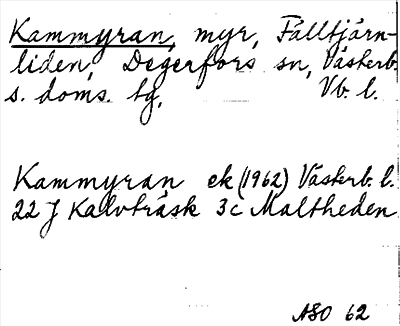 Kammyran, myr, Fälltjärn-
liden, Degerfors sn, Västerb.
s. doms. tg, Vb. l.
Kammyran ek (1962) Västerb. l.
22 J Kalvträsk 3c Maltheden
ASO 62